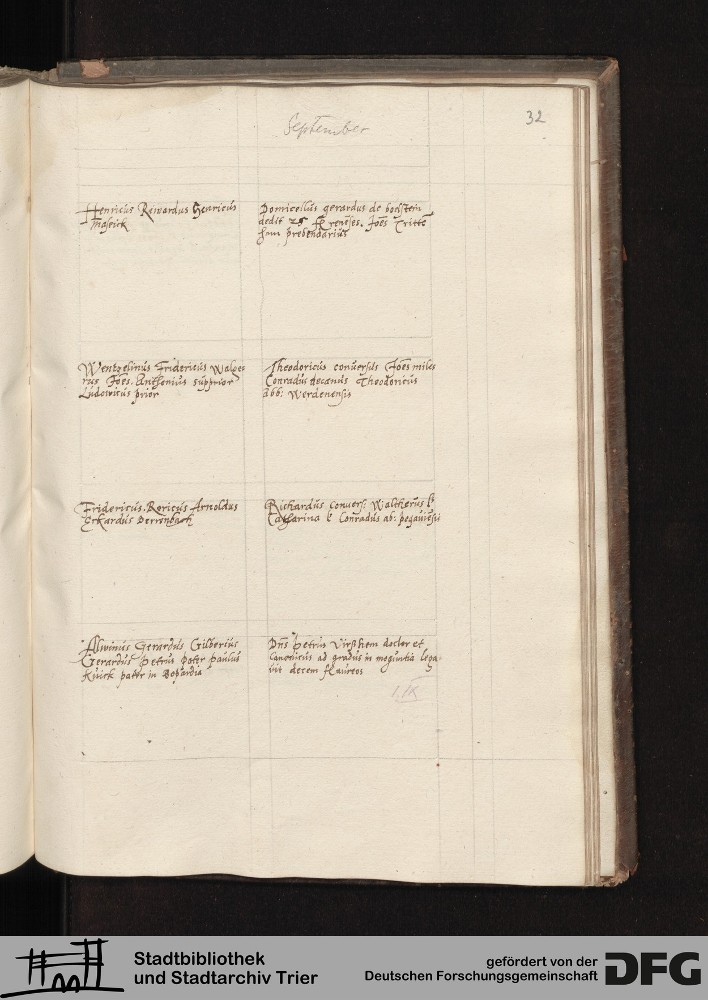 September
32
Henricus Rewardus Henricus
Maseick
Domicellus gerardus de
dedit 25 fl. Joēs Tritte
ham prebendarius
Wentzelinus Fridericus Walge
rus Joēs. Anthonius supprior
Ludovicus prior
Theodoricus conversus Joēs miles
Conradus decanus Theodoricus
abb: Werdenensis
Fridericus. Roricus Arnoldus
Eckardus Derrenbach
Richardus Convers: Waltherus
Catharina Conradus ab:
Alwinus Gerardus Gilbertus
Gerardus Petrus pater paulus
Kuick pater in Bopardia
Dns Petrus Virsshem doctor et
Canonicus ad gradus in moguntia lega
vit decem fl aureos
1.IX
Stadtbibliothek
und Stadtarchiv Trier
gefördert von der
Deutschen Forschungsgemeinschaft
DFG